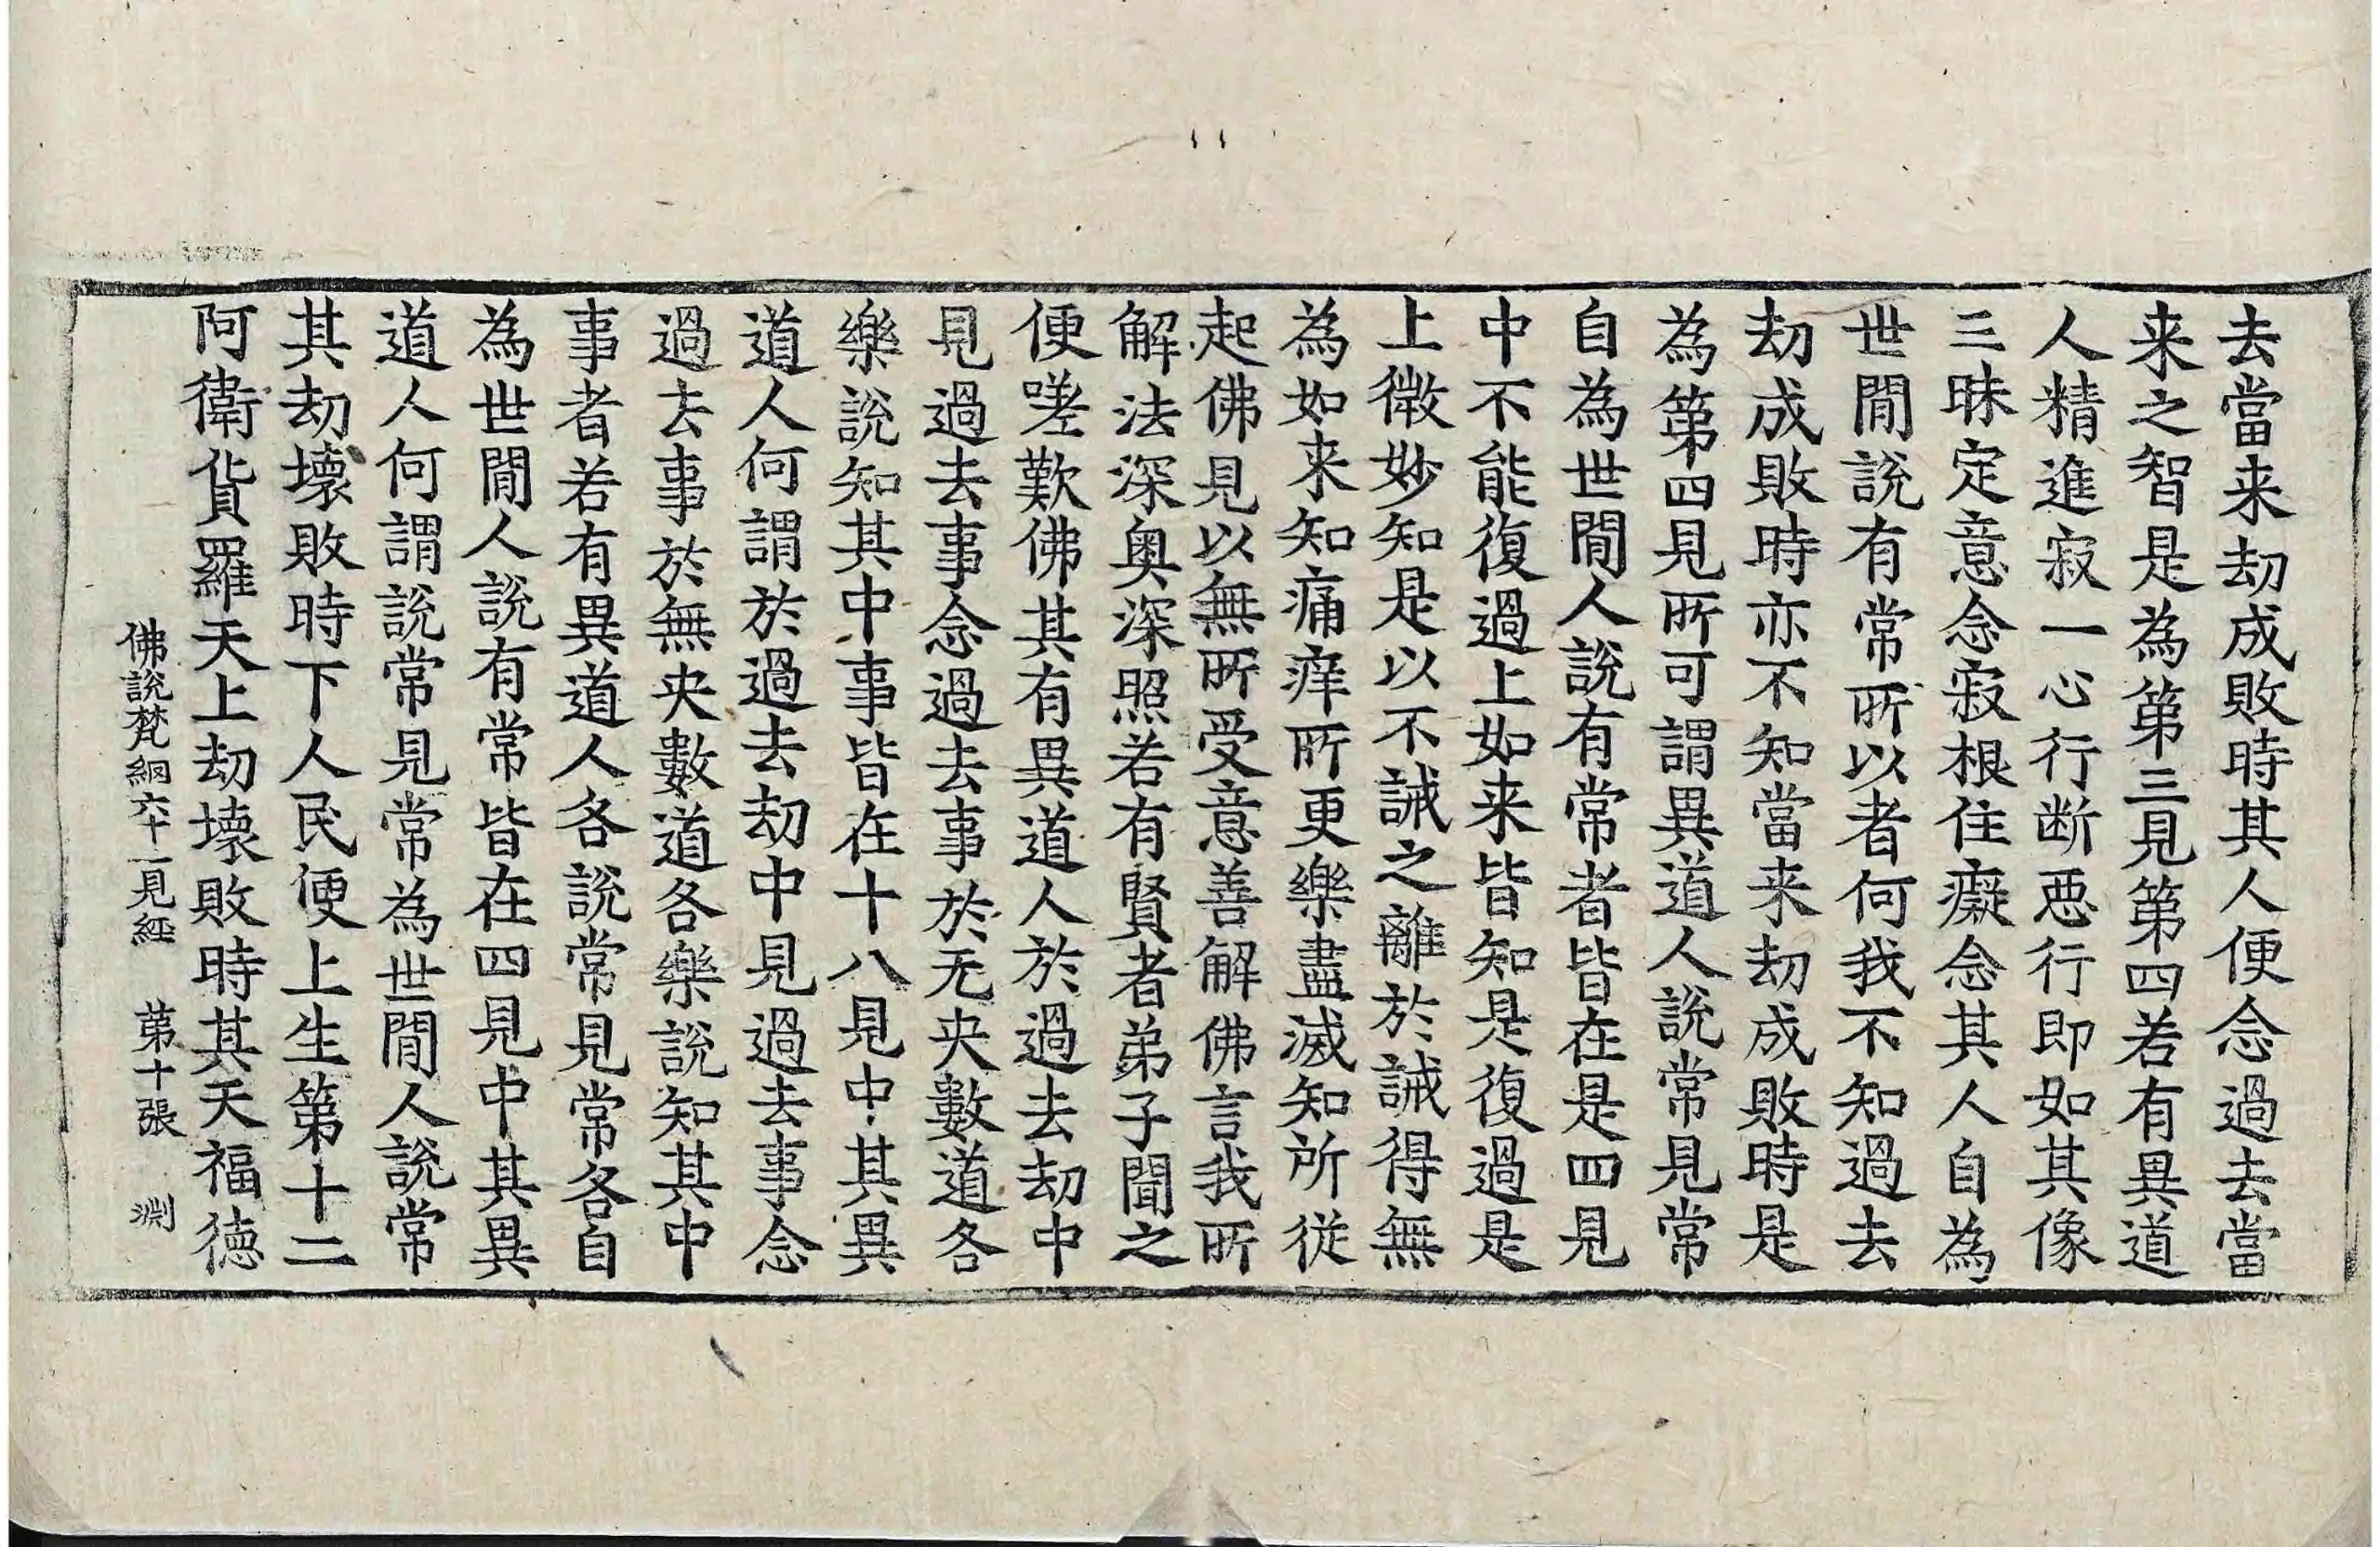 去當来劫成敗時其人便念過去當
来之智是為第三見第四若有異道
人精進寂一心行断惡行即如其像
三昧定意念寂根住癡念其人自為
世閒説有常所以者何我不知過去
劫成敗時亦不知當来劫成敗時是
為第四見所可謂異道人説常見常
自為世閒人説有常者皆在是四見
中不能復過上如来皆知是復過是
上微妙知是以不誡之離於誡得無
為如来知痛痒所更樂盡滅知所従
起佛見以無所受意善解佛言我所
解法深奥深照若有賢者弟子聞之
便嗟歎佛其有異道人於過去劫中
見過去事念過去事於无央數道各
樂説知其中事皆在十八見中其異
道人何謂於過去劫中見過去事念
過去事於無央數道各樂説知其中
事者若有異道人各説常見常各自
為世閒人説有常皆在四見中其異
道人何謂説常見常為世閒人説常
其劫壊敗時下人民便上生第十二
阿衛貨羅天上劫壊敗時其天福徳
佛説梵網六十二見經　第十張　渊